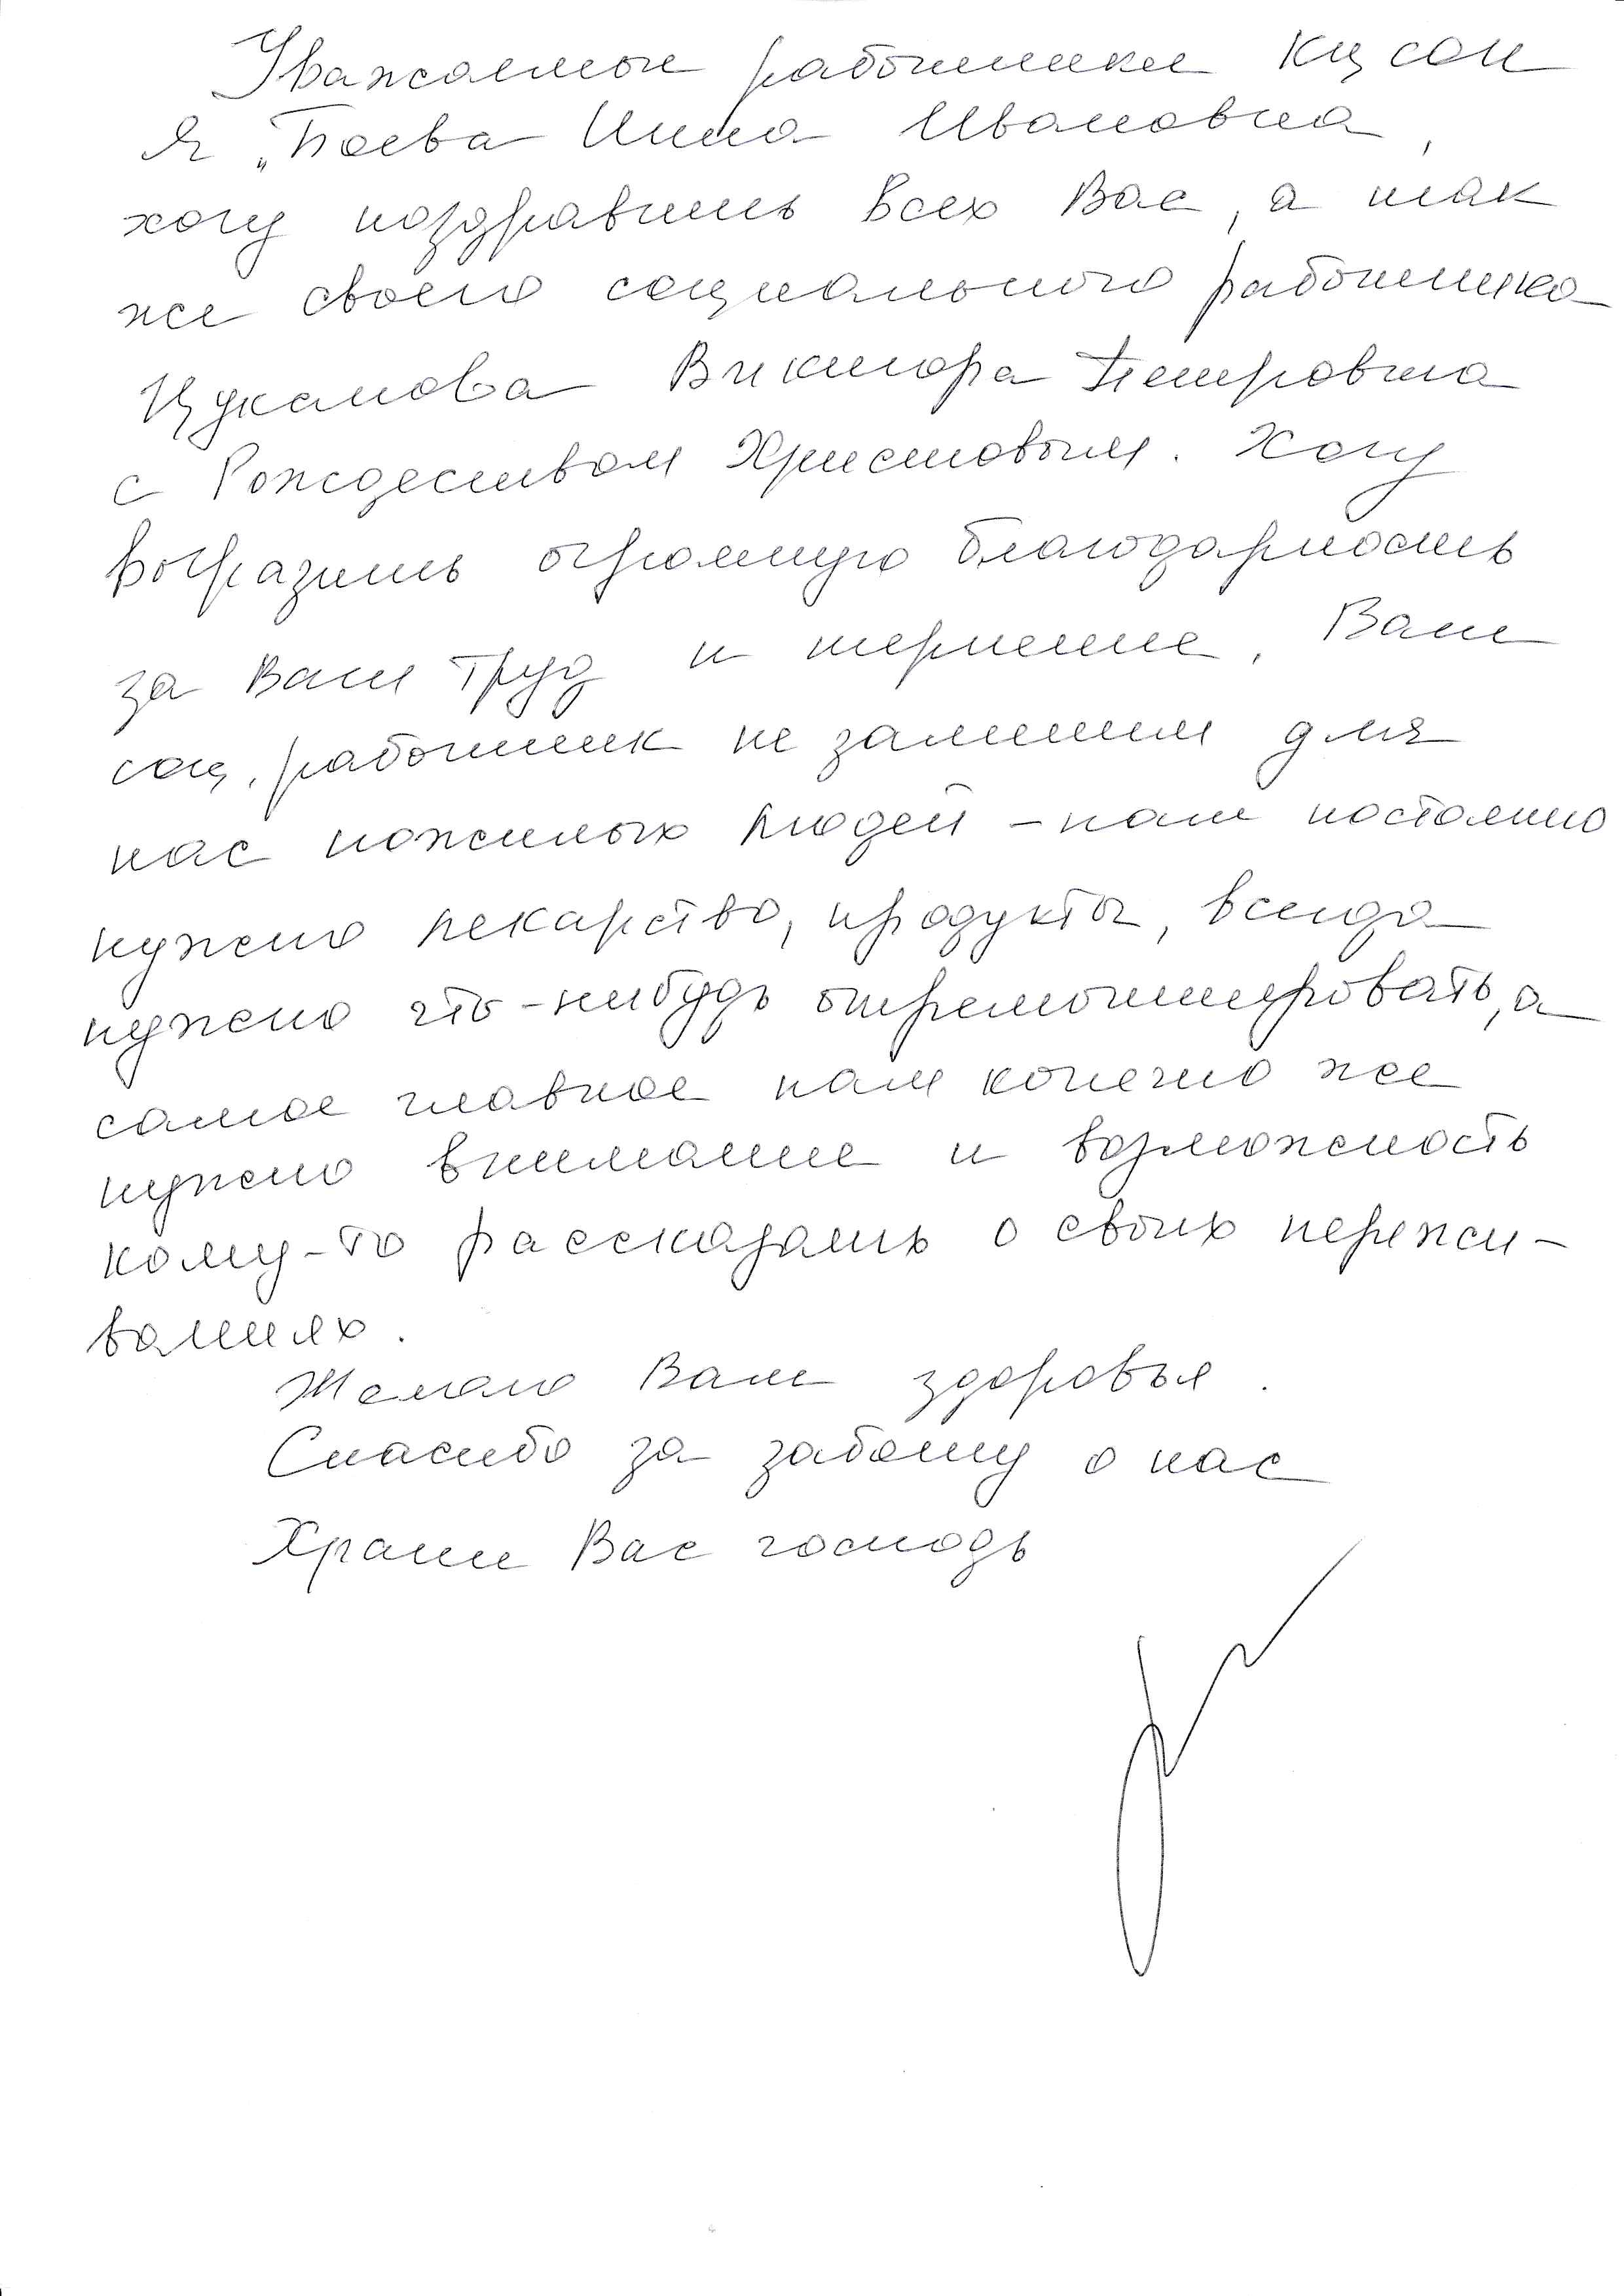 Уважаемые работники КЦСОН
я, Боева Нина Ивановна,
хочу поздравить всех Вас, а так
же своего социального работника
Цуканова Виктора Петровича
с Рождеством Христовым. Хочу
выразить огромную благодарность
за Ваш труд и терпение, Ваш
соц. работник не заменим для
нас пожилых людей - нам постоянно
нужно лекарство, продукты, всегда
нужно что-нибудь отремонтировать, а
самое главное нам конечно же
нужно внимание и возможность
кому-то рассказать о своих пережи-
ваниях.
Желаю Вам здоровья.
Спасибо за заботу о нас
Храни Вас господь